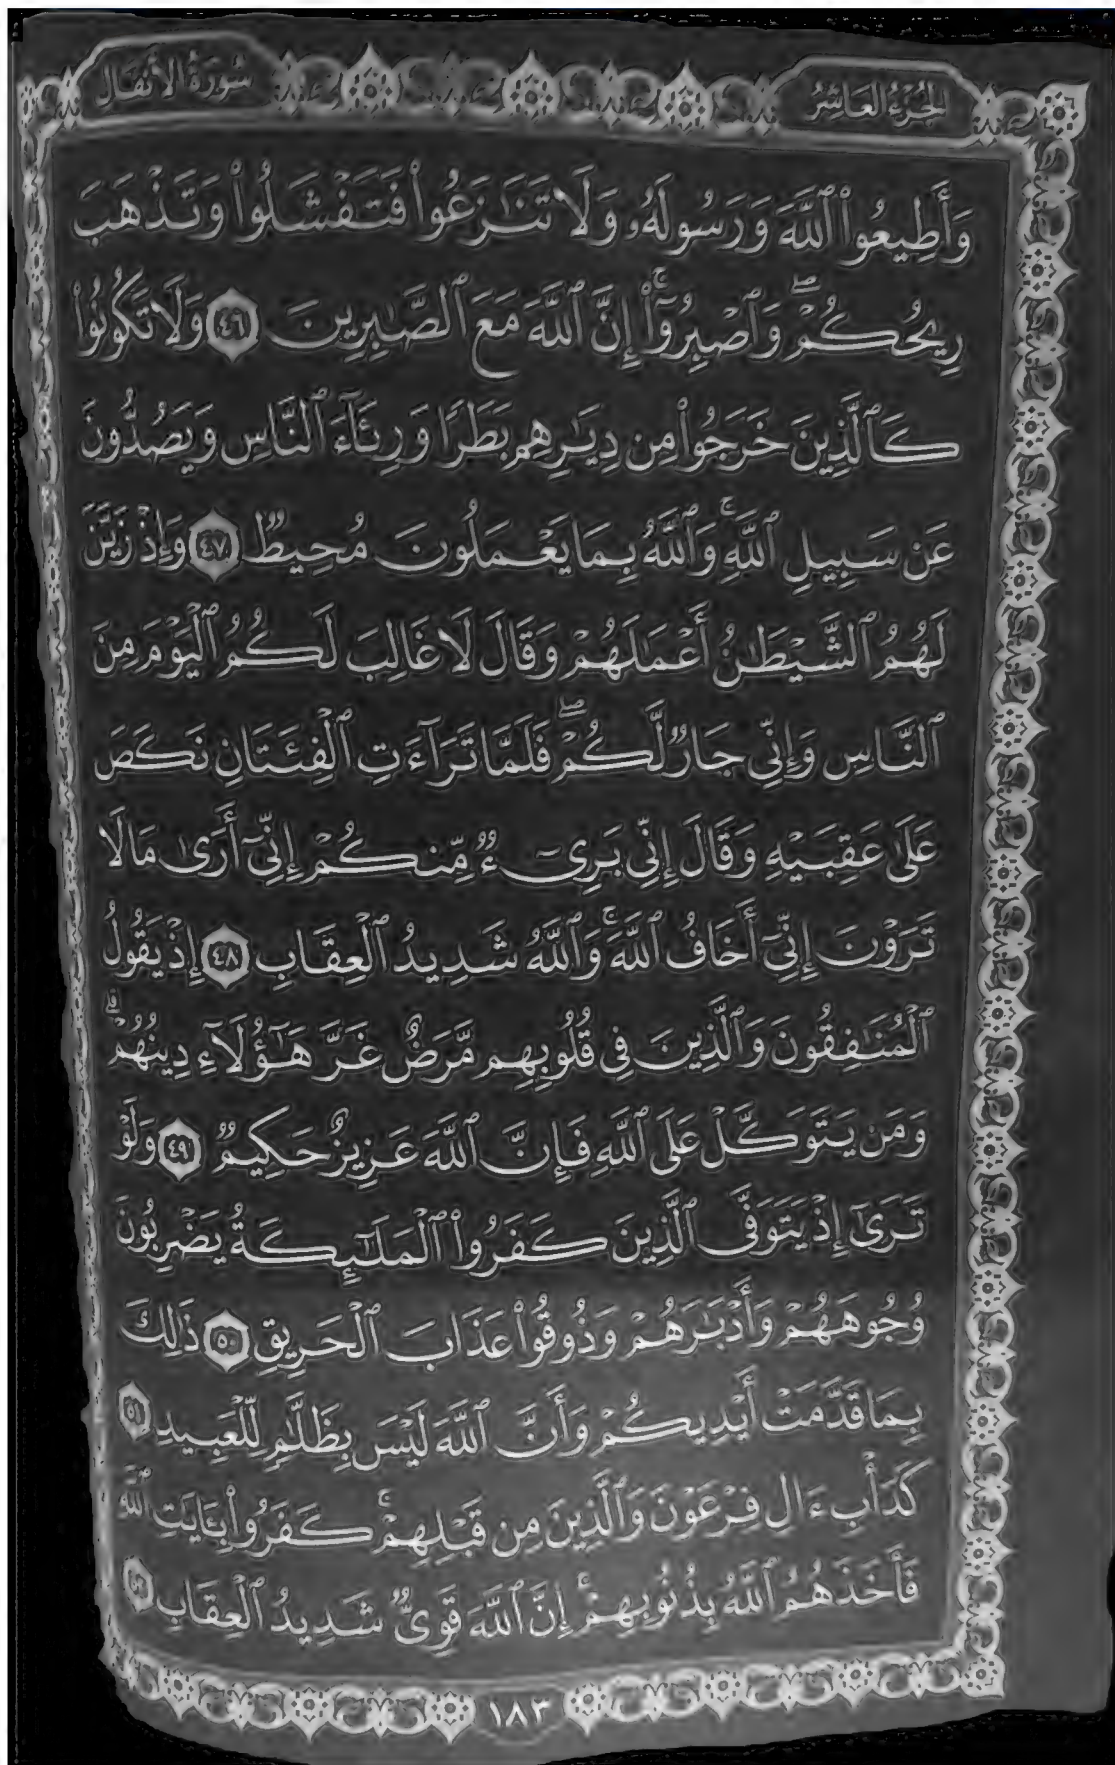 الجزء العاشر
سورة الأنفال
وَأَطِيعُوا۟ ٱللَّهَ وَرَسُولَهُۥ وَلَا تَنَٰزَعُوا۟ فَتَفْشَلُوا۟ وَتَذْهَبَ
رِيحُكُمْ ۖ وَٱصْبِرُوٓا۟ ۚ إِنَّ ٱللَّهَ مَعَ ٱلصَّٰبِرِينَ ٤٦ وَلَا تَكُونُوا۟
كَٱلَّذِينَ خَرَجُوا۟ مِن دِيَٰرِهِم بَطَرًا وَرِئَآءَ ٱلنَّاسِ وَيَصُدُّونَ
عَن سَبِيلِ ٱللَّهِ ۚ وَٱللَّهُ بِمَا يَعْمَلُونَ مُحِيطٌ ٤٧ وَإِذْ زَيَّنَ
لَهُمُ ٱلشَّيْطَٰنُ أَعْمَٰلَهُمْ وَقَالَ لَا غَالِبَ لَكُمُ ٱلْيَوْمَ مِنَ
ٱلنَّاسِ وَإِنِّى جَارٌ لَّكُمْ ۖ فَلَمَّا تَرَآءَتِ ٱلْفِئَتَانِ نَكَصَ
عَلَىٰ عَقِبَيْهِ وَقَالَ إِنِّى بَرِىٓءٌ مِّنكُمْ إِنِّىٓ أَرَىٰ مَا لَا
تَرَوْنَ إِنِّىٓ أَخَافُ ٱللَّهَ ۚ وَٱللَّهُ شَدِيدُ ٱلْعِقَابِ ٤٨ إِذْ يَقُولُ
ٱلْمُنَٰفِقُونَ وَٱلَّذِينَ فِى قُلُوبِهِم مَّرَضٌ غَرَّ هَٰٓؤُلَآءِ دِينُهُمْ ۗ
وَمَن يَتَوَكَّلْ عَلَى ٱللَّهِ فَإِنَّ ٱللَّهَ عَزِيزٌ حَكِيمٌ ٤٩ وَلَوْ
تَرَىٰٓ إِذْ يَتَوَفَّى ٱلَّذِينَ كَفَرُوا۟ ٱلْمَلَٰٓئِكَةُ يَضْرِبُونَ
وُجُوهَهُمْ وَأَدْبَٰرَهُمْ وَذُوقُوا۟ عَذَابَ ٱلْحَرِيقِ ٥٠ ذَٰلِكَ
بِمَا قَدَّمَتْ أَيْدِيكُمْ وَأَنَّ ٱللَّهَ لَيْسَ بِظَلَّٰمٍ لِّلْعَبِيدِ ٥١
كَدَأْبِ ءَالِ فِرْعَوْنَ وَٱلَّذِينَ مِن قَبْلِهِمْ ۚ كَفَرُوا۟ بِـَٔايَٰتِ ٱللَّهِ
فَأَخَذَهُمُ ٱللَّهُ بِذُنُوبِهِمْ ۗ إِنَّ ٱللَّهَ قَوِىٌّ شَدِيدُ ٱلْعِقَابِ ٥٢
١٨٣